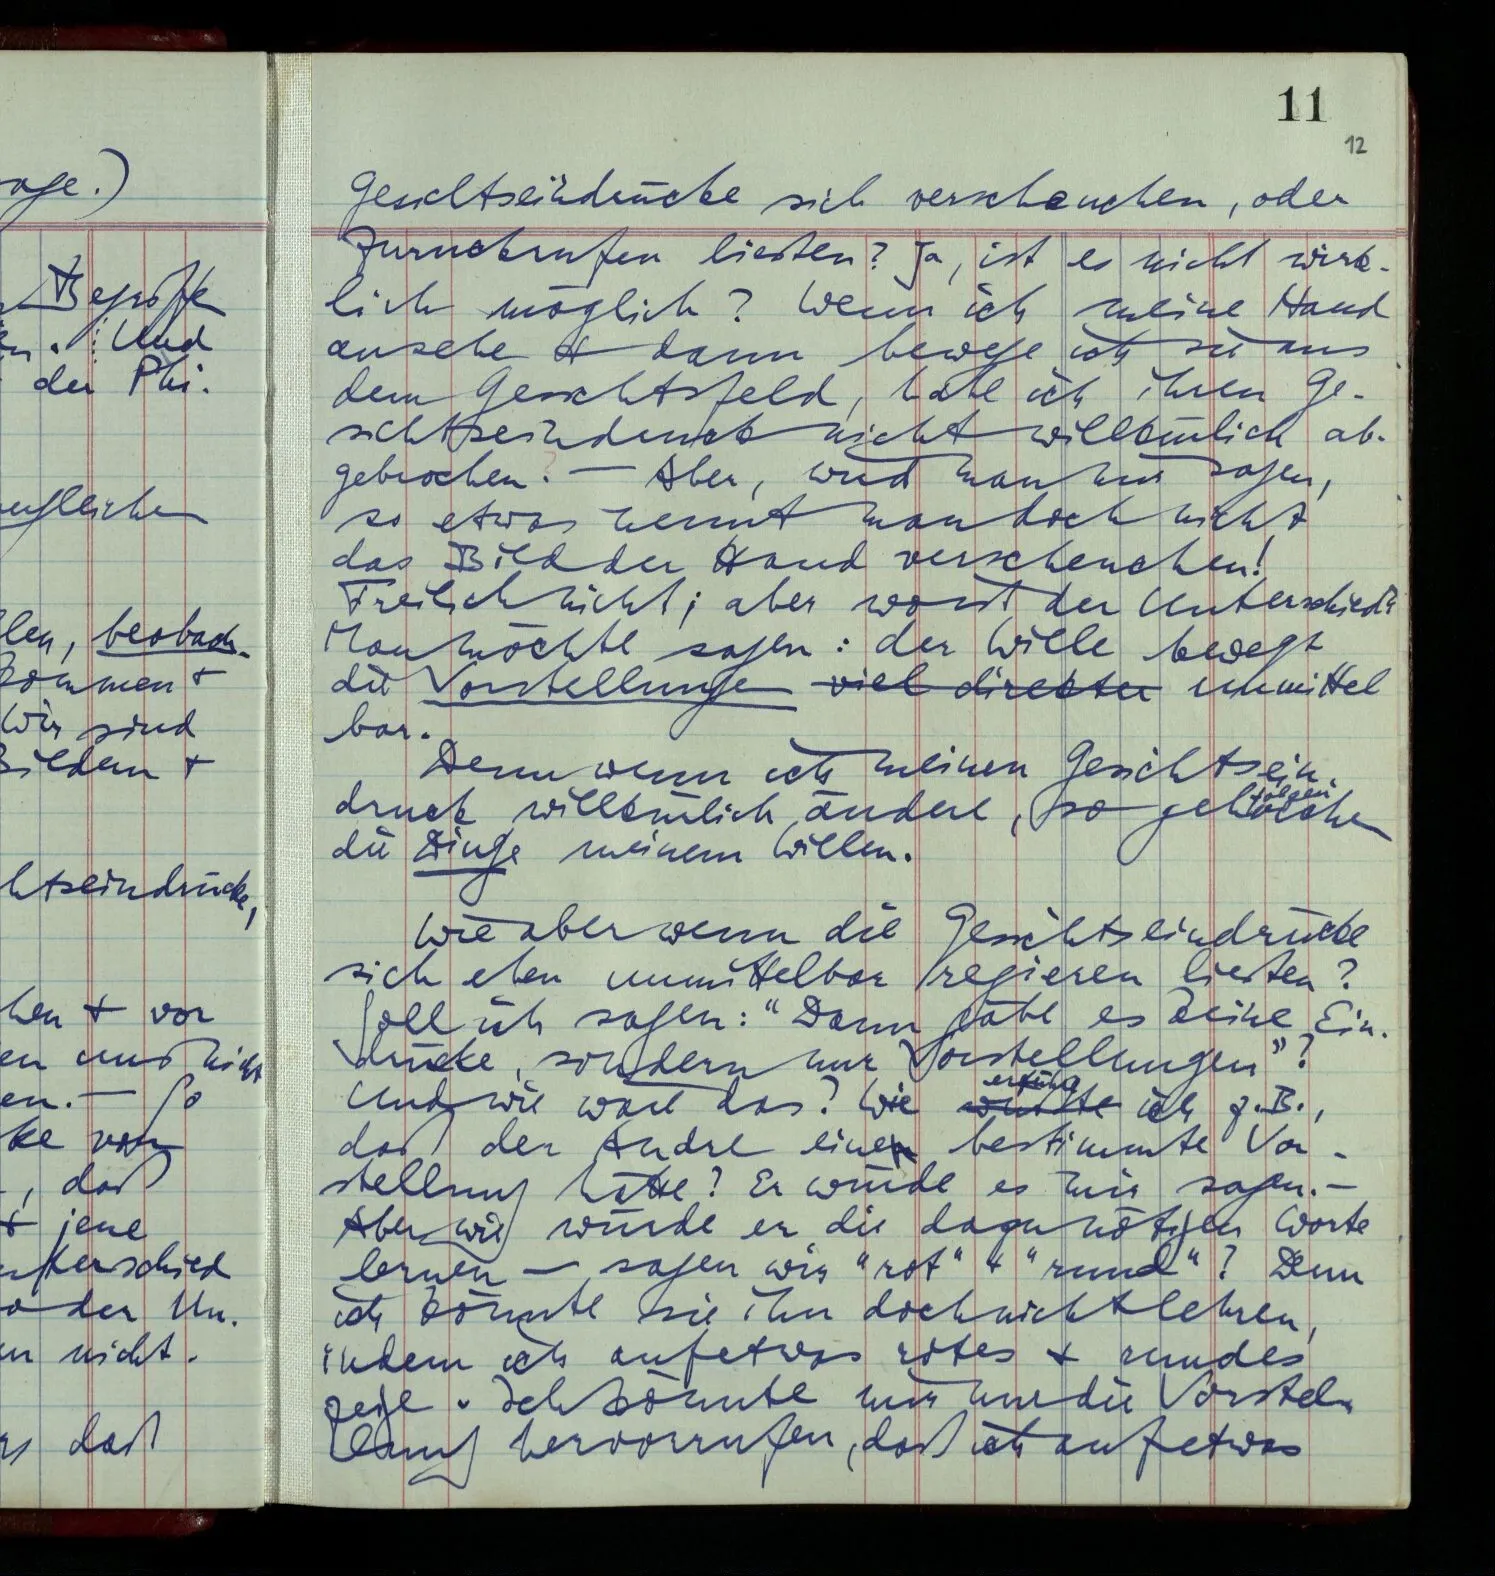 11
12
age.)
Begriffe
Und
der Phi.
len, beobach-
kommen +
Wir sind
Bildern +
htseindrücke,
hen + vor
en und nicht
en. — So
ke von
, daß
+ jene
nterschied
o der Un.
n nicht.
rs daß
Gesichtseindrücke sich verscheuchen, oder
zurückrufen ließen? Ja, ist es nicht wirk-
lich möglich? Wenn ich meine Hand
ansehe & dann bewege ich sie aus
dem Gesichtsfeld, habe ich ihren Ge-
sichtseindruck nicht willkürlich ab-
gebrochen? — Aber, wird man mir sagen,
so etwas nennt man doch nicht
das Bild der Hand verscheuchen!
Freilich nicht; aber wo ist der Unterschied?
Man möchte sagen: der Wille bewegt
die Vorstellungen viel direkter unmittel
bar.
Denn wenn ich meinen Gesichtsein-
druck willkürlich ändere, so gehorchen
folgen
die Dinge meinem Willen.
Wie aber wenn die Gesichtseindrücke
sich eben unmittelbar regieren ließen?
Soll ich sagen: "Dann gäbe es keine Ein-
drücke, sondern nur Vorstellungen"?
erführe
Und wie wäre das? Wie wüßte ich z.B.,
daß der Andre eine bestimmte Vor-
stellung hätte? Er würde es mir sagen. —
Aber wie würde er die dazu nötigen Worte
lernen — sagen wir "rot" & "rund"? Denn
ich könnte sie ihn doch nicht lehren,
indem ich auf etwas rotes & rundes
zeige. Ich könnte mir nur die Vorstel-
lung hervorrufen, daß ich auf etwas